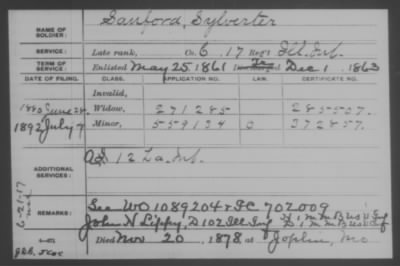 NAME OF SOLDIER: Sanford, Sylvester
SERVICE: Late rank, Co. G. 17 Reg't Ill. Inf.
TERM OF SERVICE: Enlisted May 25 1861 Dec 1 1863
DATE OF FILING. CLASS. APPLICATION NO. LAW. CERTIFICATE NO.
Invalid,
1880 June 28. Widow, 271285
1892 July 7 Minor, 559134 372857.
ADDITIONAL SERVICES: 12 La. Inf.
REMARKS: See WO 1089204 & FC 702009
John N Lippy, D 102 Ill Inf
Died Nov 20 1878, at Joplin, Mo
6-21-17